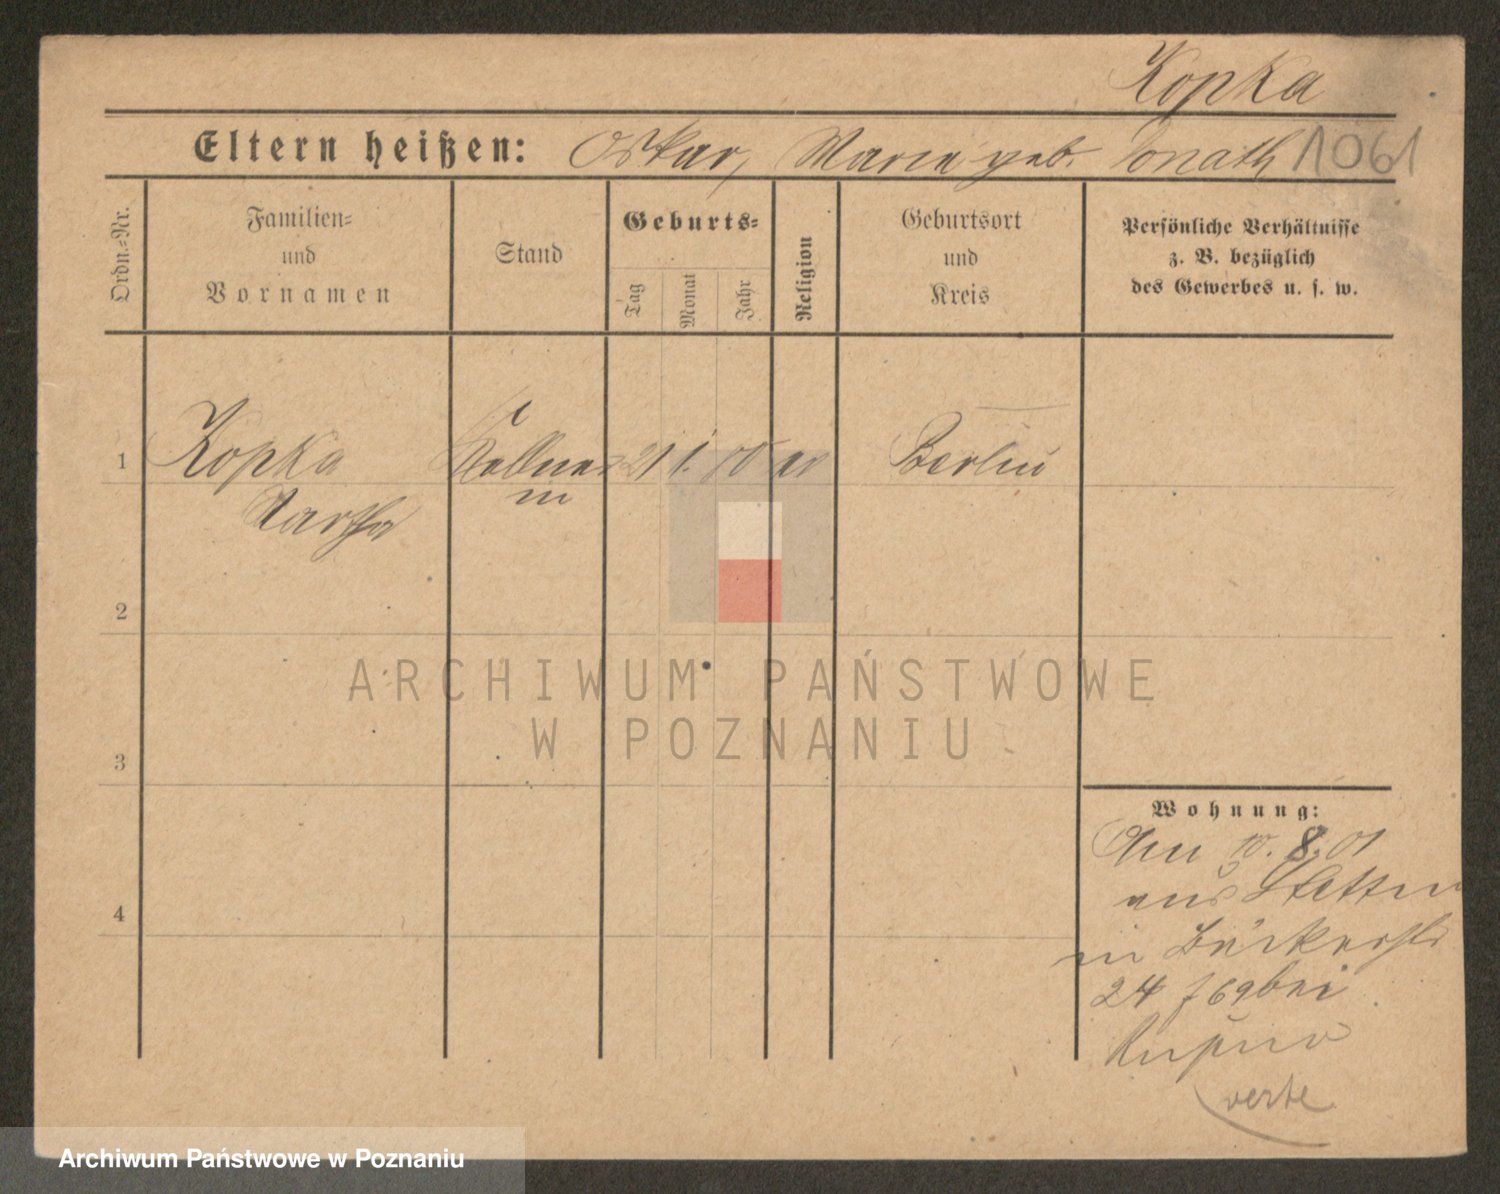 Kopka
Eltern heißen: Oskar, Maria geb. Jonath 1061
Ordn.-Nr.
Familien-
und
Vornamen
Stand
Geburts-
Tag
Monat
Jahr
Religion
Geburtsort
und
Kreis
Persönliche Verhältnisse
z. B. bezüglich
des Gewerbes u. s. w.
1 Kopka Kellner 21 1. Berlin
in
Martha
2
3
4
ARCHIWUM PAŃSTWOWE
W POZNANIU
Wohnung:
Am 10. 8. 01
aus Stettin
in Bäckerstr
24 bei
verte
Archiwum Państwowe w Poznaniu